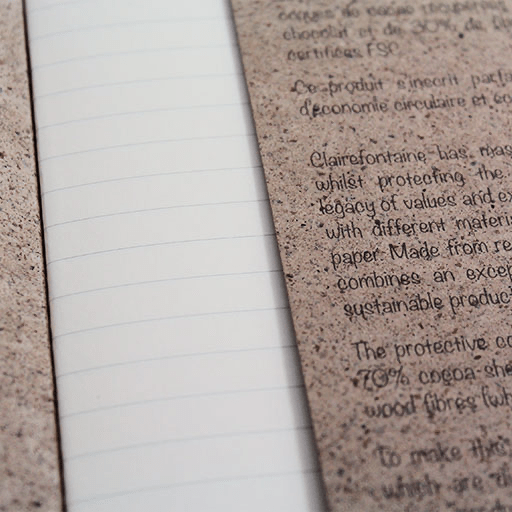 coques de cacao récupérées
chocolat et de 30% de
certifiées FSC
Ce produit s'inscrit parfa
d'économie circulaire et éc
Clairefontaine has mas
whilst protecting the
legacy of values and ex
with different materi
paper. Made from re
combines an excep
sustainable produc
The protective co
70% cocoa she
wood fibres (wh
To make this
which are